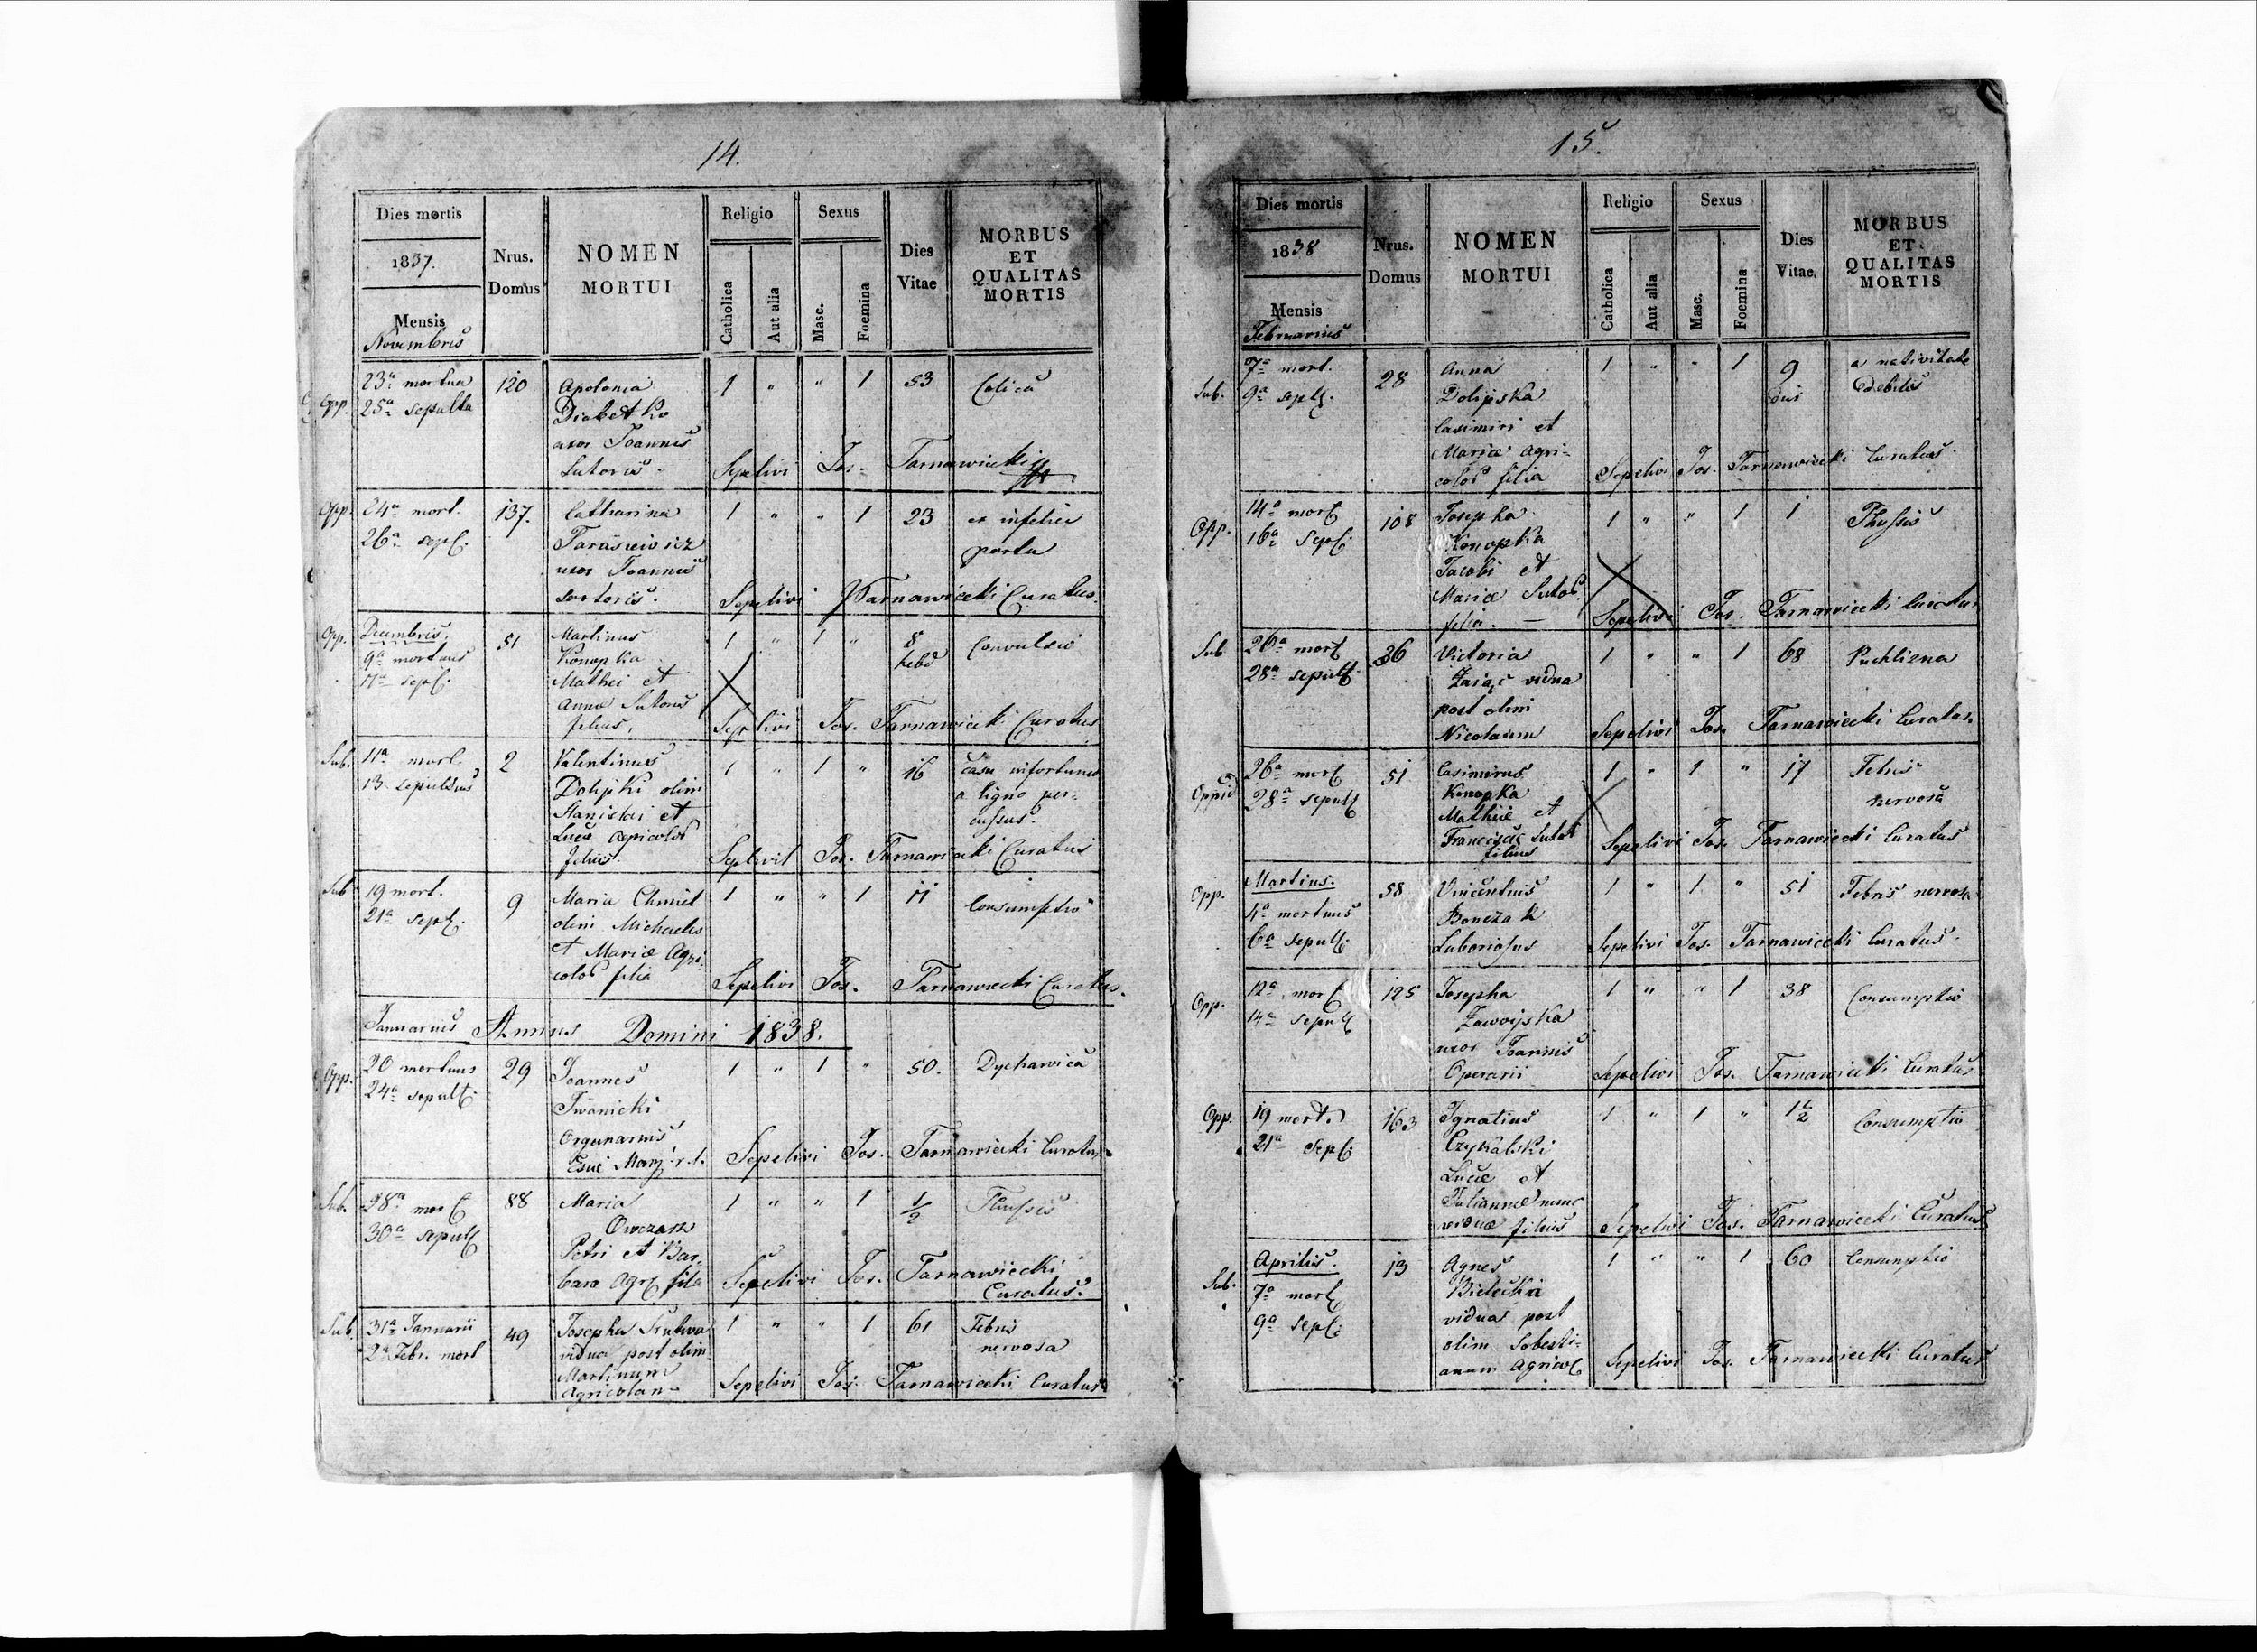 14.
Dies mortis
1837.
Mensis
Novembris
Nrus.
Domus
NOMEN
MORTUI
Religio
Catholica
Aut alia
Sexus
Masc.
Foemina
Dies
Vitae
MORBUS
ET
QUALITAS
MORTIS
Opp. 23a mortua 120 Apolonia 1 " " 1 53 Colica
25a sepulta
uxor Joannis
Sutoris. Sepelivi Jos. Tarnawiecki
Opp. 24a mort. 137. Catharina 1 " " 1 23 ex infelici
26a sepl. Tarasiewicz partu
uxor Joannis
Sartoris. Sepelivi J Tarnawiecki Curatus.
Opp. Decembris. 51 Martinus 1 " 1 " 8 Convulsio
9a mortuus Konopka hebd
11a sepl. Mathei et
Anna Sutoris
filius, Sepelivi Jos. Tarnawiecki Curatus
Sub. 11a mort. 2 Valentinus 1 " 1 " 16 casu infortunio
13 sepultus Dolipki olim a ligno per-
Stanislai et cussus.
Lucia Agricolor
filius. Sepelivit Jos. Tarnawiecki Curatus
Sub 19 mort. 9 Maria Chmiel 1 " " 1 11 Consumptio
21a sepl. olim Michaelis
et Mariæ Agri-
color filia Sepelivi Jos. Tarnawiecki Curatus.
Januarius Annus Domini 1838.
Opp. 20 mortuus 29 Joannes 1 " 1 " 50. Dychawica
24a sepult. Iwanicki
Organarius Sepelivi Jos. Tarnawiecki Curatus
Sub. 28a mort 88 Maria 1 " " 1 1/2 Thussis
30a sepult Owczarz
Petri et Bar-
bara Agr. filia Sepelivi Jos. Tarnawiecki
Curatus.
Sub. 31a Januarii 49 Josepha 1 " " 1 61 Febris
2a Febr. mort vidua post olim nervosa
Martinum
Agricolam Sepelivi Jos. Tarnawiecki Curatus
15.
Dies mortis
1838
Mensis
Februarius
Nrus.
Domus
NOMEN
MORTUI
Religio
Catholica
Aut alia
Sexus
Masc.
Foemina
Dies
Vitae.
MORBUS
ET
QUALITAS
MORTIS
Sub. 7a mort. 28 Anna 1 " " 1 9 a nativitate
9a sepl. Dolipska dies debilis
Casimiri et
Mariæ Agri-
color filia Sepelivi Jos. Tarnawiecki Curatus.
Opp. 14a mort 108 Josepha 1 " " 1 1 Thussis
16a sepl. Konopka
Jacobi et
Mariæ Sutor.
filia. — Sepelivi Jos. Tarnawiecki Curatus
Sub 26a mort 36 Victoria 1 " " 1 68 Puchlizna
28a sepult. Zając vidua
post olim
Nicolaum Sepelivi Jos. Tarnawiecki Curatus.
Oppid 26a mort 51 Casimirus 1 " 1 " 17 Febris
28a sepult Konopka nervosa
Mathiæ et
Franciscæ Sutor Sepelivi Jos. Tarnawiecki Curatus
filius
Opp. Martius. 58 Vincentius 1 " 1 " 51 Febris nervosa
4a mortuus Bonczak
6a sepult. Laboriosus Sepelivi Jos. Tarnawiecki Curatus.
Opp. 12a mort 125 Josepha 1 " " 1 38 Consumptio
14a sepult Zawojska
uxor Joannis
Operarii Sepelivi Jos. Tarnawiecki Curatus
Opp. 19 mort. 163 Ignatius 1 " 1 " 1 1/2 Consumptio
21a sepl. Czykalski
Lucæ et
Julianna nunc
viduæ filius Sepelivi Jos. Tarnawiecki Curatus
Sub. Aprilis. 13 Agnes 1 " " 1 60 Consumptio
7a mort Bielecka
9a sepl. vidua post
olim Sobesti-
anum Agricol Sepelivi Jos. Tarnawiecki Curatus